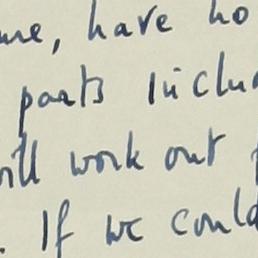 me, have ho
parts inclu
will work out
. If we could